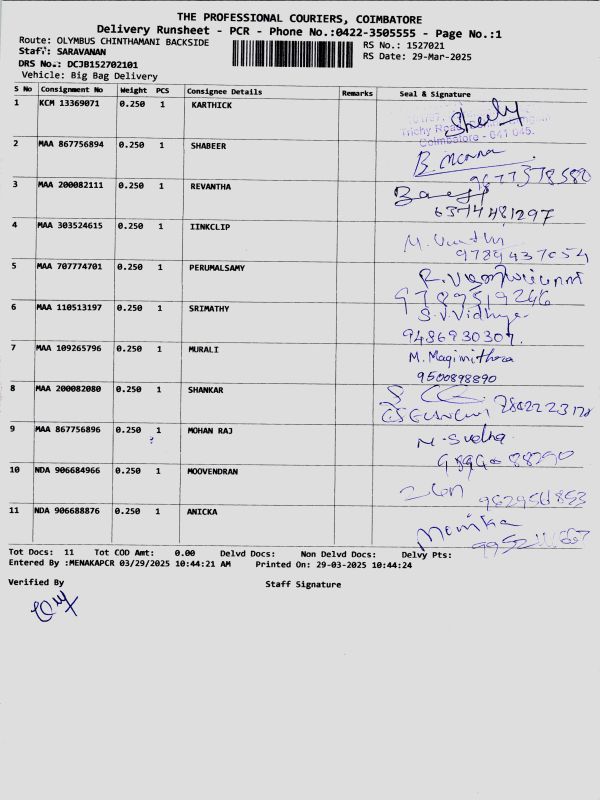 THE PROFESSIONAL COURIERS, COIMBATORE
Delivery Runsheet - PCR - Phone No.:0422-3505555 - Page No.:1
Route: OLYMBUS CHINTHAMANI BACKSIDE
RS No.: 1527021
Staff: SARAVANAN
RS Date: 29-Mar-2025
DRS No.: DCJB152702101
Vehicle: Big Bag Delivery
S No Consignment No Weight PCS Consignee Details Remarks Seal & Signature
1 KCM 13369071 0.250 1 KARTHICK
Trichy Road
Coimbatore - 641 045.
2 MAA 867756894 0.250 1 SHABEER
9677378580
3 MAA 200082111 0.250 1 REVANTHA
6374481297
4 MAA 303524615 0.250 1 IINKCLIP
9789437054
5 MAA 707774701 0.250 1 PERUMALSAMY
9789519246
6 MAA 110513197 0.250 1 SRIMATHY
S.V.Vidhya
9486930307.
7 MAA 109265796 0.250 1 MURALI
9500898890
8 MAA 200082080 0.250 1 SHANKAR
9 MAA 867756896 0.250 1 MOHAN RAJ
N. Sudha
10 NDA 906684966 0.250 1 MOOVENDRAN
11 NDA 906688876 0.250 1 ANICKA
Monika
Tot Docs: 11 Tot COD Amt: 0.00 Delvd Docs: Non Delvd Docs: Delvy Pts:
Entered By :MENAKAPCR 03/29/2025 10:44:21 AM Printed On: 29-03-2025 10:44:24
Verified By Staff Signature